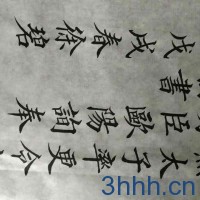 太子率更令
臣歐陽詢奉
書
戊戌春徐碧
3hhh.cn